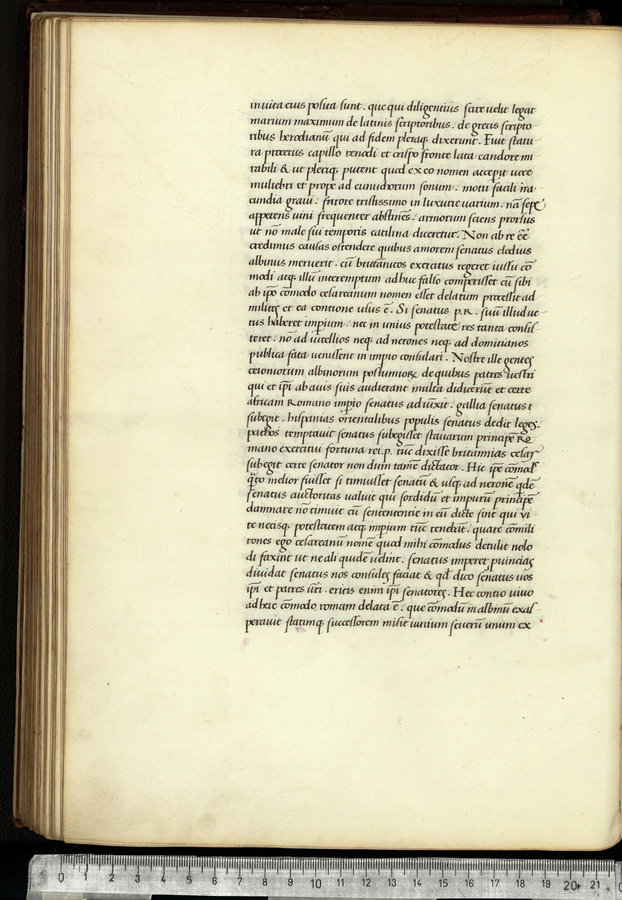 in vita eius posita sunt. que qui diligentius scire uelit legat
marium maximum de latinis scriptoribus. de grecis scripto
ribus herodianū qui ad fidem pleraq; dixerunt. Fuit statu
ra procerus capillo renodi et crispo fronte lata candore mi
rabili & ut pleriq; putent quod ex eo nomen accepit uoce
muliebri et prope ad eunuchorum sonum. motu facili ira
cundia graui. furore tristissimo in luxurie uarium. nā sepe
appetens uini frequenter abstinēs. armorum sciens prorsus
ut nō male sui temporis catilina diceretur. Non ab re eē
credimus causas ostendere quibus amorem senatus clodius
albinus meruerit. cū britanicos exercitus regeret iussu cō
modi atq; illū interemptum adhuc falso comperisset cū sibi
ab ipō cōmodo cesareanum nomen esset delatum processit ad
milites et ea contione usus ē. Si senatus p.R. suū illud ue
tus haberet imperium. nec in unius potestate res tanta consis
teret. nō ad uitellios neq; ad nerones neq; ad domitianos
publica fata uenissent in impio consulari. Nostre ille gentes
ceioniorum albinorum postumiorꝝ de quibus patres uestri
qui et ipī ab auis suis audierant multa didicerūt et certe
africam Romano impio senatus adiūxit. gallia senatus t
subegit. hispanias orientalibus populis senatus dedit leges.
pathos temptauit senatus subegisset
mano exercitui fortuna rei.p. tūc dixisse britannias cesar
subegit certe senator non dum tamē dictator. Hic ipe cōmod
q̄to melior fuisset si timuisset senatū & usq; ad neronē q̄dē
senatus auctoritas ualuit qui sordidū et impurū principē
damnare nō timuit cū sentententie in eū dicte sint qui vi
te necisq; potestatem atq; imperium tūc tenebāt. quare cōmili
tones ego cesareanū nomē quod mihi cōmodus detulit nolo
di faxint ut ne ali quidē uelint. senatus imperet puincias
diuidat senatus nos consules faciat & qd dico senatus uos
ipī et patres uri. eritis enim ipī senatores. Hec contio uiuo
adhuc cōmodo romam delata ē. que cōmodū in albinū exas
perauit statimq; successorem misit iunium seuerū unum ex
0 1 2 3 4 5 6 7 8 9 10 11 12 13 14 15 16 17 18 19 20 21